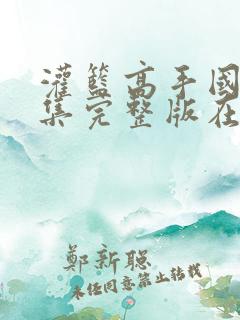 灌籃高手國
集完整版在
鄭新聰
未任同意禁止转载